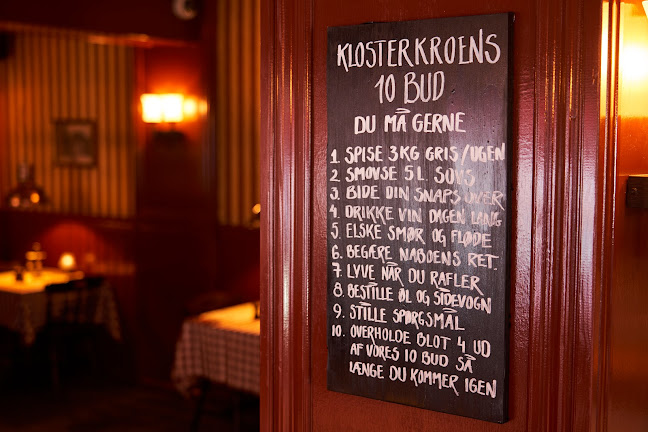 KLOSTERKROENS
10 BUD
DU MÅ GERNE
1. SPISE 3 KG GRIS/UGEN
2. SMOVSE 5 L. SOVS
3. BIDE DIN SNAPS OVER
4. DRIKKE VIN DAGEN LANG
5. ELSKE SMØR OG FLØDE
6. BEGÆRE NABOENS RET.
7. LYVE NÅR DU RAFLER
8. BESTILLE ØL OG SIDEVOGN
9. STILLE SPØRGSMÅL
10. OVERHOLDE BLOT 4 UD
AF VORES 10 BUD SÅ
LÆNGE DU KOMMER IGEN